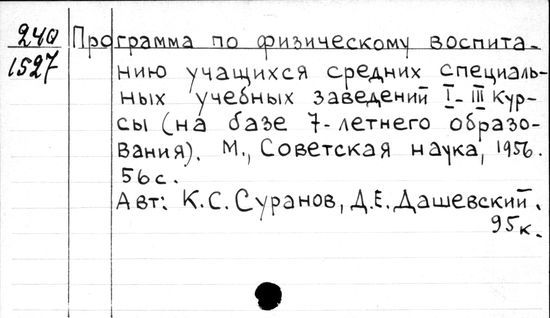 240 Программа по физическому воспита-
1527 нию учащихся средних специаль-
ных учебных заведений I-III Кур-
сы (на базе 7-летнего образо-
вания). М., Советская наука, 1956.
56 с.
Авт: К.С. Суранов, Д.Е. Дашевский.
95к.